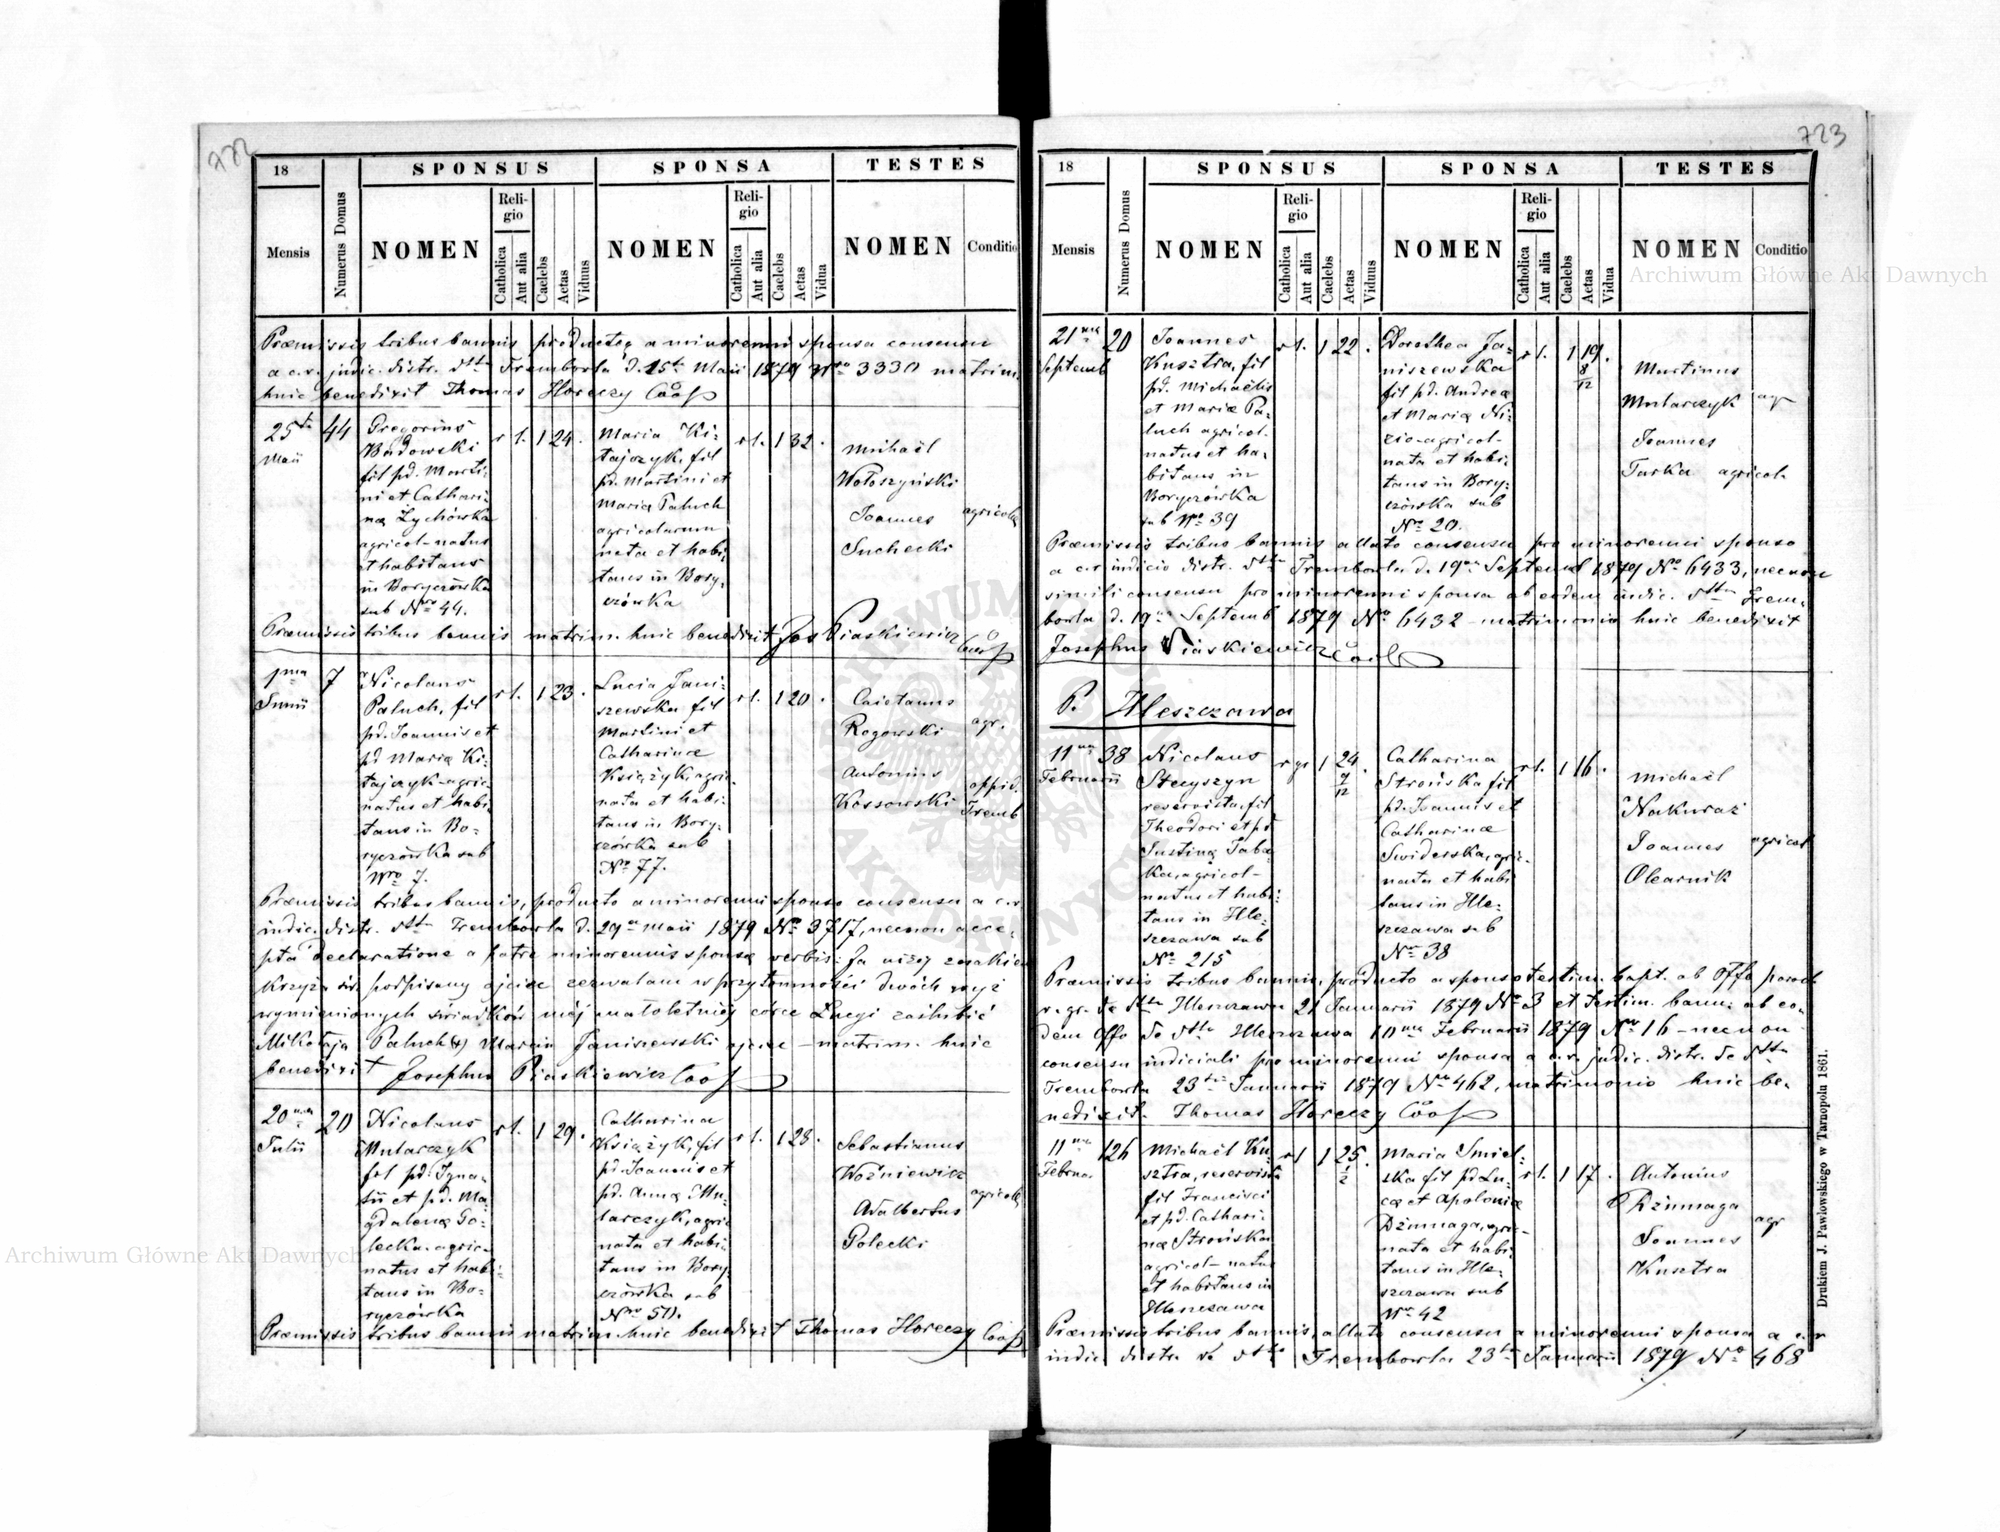 722
18
SPONSUS
SPONSA
TESTES
Mensis
Numerus Domus
NOMEN
Religio
Catholica
Aut alia
Caelebs
Aetas
Viduus
NOMEN
Religio
Catholica
Aut alia
Caelebs
Aetas
Vidua
NOMEN
Conditio
Præmissis tribus bannis productoq a minorenni sponsa consensu
a c.r. judic. distr. dtto Trembowla d. 15ta Maii 1879 Nro 3330 matrim.
huic benedixit Thomas Horeczy Coop
25ta Maii
44
Gregorius
Badowski
fil pd. Marti-
ni et Cathari-
næ Zychówka
agricol- natus
et habitans
in Boryczówka
sub Nro 44.
r l. 1 24.
Maria Ki-
tajczyk, fil
pd. Martini et
Mariæ Paluch
agricolarum
nata et habi-
tans in Bory-
czówka
r l. 1 32.
Michaël
Wołoszyński
Joannes
Suchecki
agricolæ
Præmissis tribus bannis matrim. huic benedixit Jos Piaskiewicz Coop
1ma Junii
7
Nicolaus
Paluch, fil
pd. Joannis et
pd Mariæ Ki-
tajczyk- agric-
natus et habi-
tans in Bo-
ryczówka sub
Nro 7.
r l. 1 23.
Lucia Jani-
szewska fil
Martini et
Catharinæ
Książyk, agric-
nata et habi-
tans in Bory-
czówka sub
No 77.
r l. 1 20.
Caietanus
Rogowski
agr.
Antonius
Kossowski
oppid. Tremb
Præmissis tribus bannis, producto a minorenni sponso consensu a c.r
iudic. distr. dtto Trembowla d. 29a Maii 1879 No 3717, necnon acce-
pta declaratione a patre minorennis sponsæ verbis: Ja niżej znakiem
krzyża św. podpisany ojciec zezwalam w przytomności dwóch wyż
wymienionych świadków mej małoletniej córce Łucyi zaślubić
Mikołaja Paluch (+) Marcin Janiszewski ojciec - matrim. huic
benedixit Josephus Piaskiewicz Coop
20ma Julii
20
Nicolaus
Mularczyk
fil pd. Igna-
tii et pd. Ma-
gdalenæ Go-
lecka- agric-
natus et habi-
tans in Bo-
ryczówka
r l. 1 29.
Catharina
Książyk, fil
pd. Joannis et
pd. Annæ Mu-
larczyk, agric
nata et habi-
tans in Bory-
czówka sub
Nro 50.
r l. 1 28.
Sebastianus
Woźniewicz
Adalbertus
Golecki
agricolæ
Præmissis tribus bannis matrim. huic benedixit Thomas Horeczy Coop
723
18
SPONSUS
SPONSA
TESTES
Mensis
Numerus Domus
NOMEN
Religio
Catholica
Aut alia
Caelebs
Aetas
Viduus
NOMEN
Religio
Catholica
Aut alia
Caelebs
Aetas
Vidua
NOMEN
Conditio
21ma Septemb
20
Joannes
Kusztra, fil
pd. Michaëlis
et Mariæ Pa-
luch agricol-
natus et ha-
bitans in
Boryczówka
sub No 39
r l. 1 22.
Dorothea Ja-
niszewska
fil pd. Andreæ
et Mariæ Ni-
zio- agricol-
nata et habi-
tans in Bory-
czówska sub
No 20.
r l. 1 19. 8/12
Martinus
Mularczyk
agr
Joannes
Turka agricol-
Præmissis tribus bannis allato consensu pro minorenni sponso
a c.r iudicio distr. dtto Trembowla d. 19na Septemb 1879 No 6433, necnon
simili consensu pro minorenni sponsa ab eodem iudic. dtto Trem-
bowla d. 19na Septemb 1879 No 6432 - matrimonio huic benedixit
Josephus Piaskiewicz Coop
P. Hleszczawa
11na Februarii
38
Nicolaus
Stecyszyn
reservista, fil
Theodori et pd
Justinæ Taba-
ka, agricol-
natus et habi-
tans in Hle-
szczawa sub
No 215
r gr 1 24 7/12.
Catharina
Strońska fil
pd. Joannis et
Catharinæ
Swiderska, agric-
nata et habi
tans in Hle-
szczawa sub
No 38
r l. 1 16.
Michaël
Nakuraz
Joannes
Olearnik
agricol
Præmissis tribus bannis, producto a sponso testim. bapt. ab Offo paroch
r. gr. de dtto Hleszczawa 21 Januarii 1879 No 3 et testim. bann. ab eo-
dem Offo de dtto Hleszczawa 10na Februarii 1879 No 16 - necnon
consensu iudiciali pro minorenni sponsa a c.r. judic. distr. de dtto
Trembowla 23tia Januarii 1879 No 462, matrimonio huic be-
nedixit. Thomas Horeczy Coop
11na Februa.
126
Michaël Ku-
sztra, reservista
fil Francisci
et pd. Cathari-
næ Strońska
agricol- natus
et habitans in
Hleszczawa
r l 1 25. 1/2
Maria Smiel-
ska fil pd Lu-
cæ et Apoloniæ
Dżumaga, agr-
nata et habi-
tans in Hle-
szczawa sub
No 42
r l. 1 17.
Antonius
Dżumaga
Joannes
Kusztra
agr
Præmissis tribus bannis, allato consensu a minorenni sponsa a c.r
iudic. distr. de dtto Trembowla 23tia Januarii 1879 No 468
Drukiem J. Pawłowskiego w Tarnopolu 1861.
Archiwum Główne Akt Dawnych
Archiwum Główne Akt Dawnych
ARCHIWUM GŁÓWNE AKT DAWNYCH